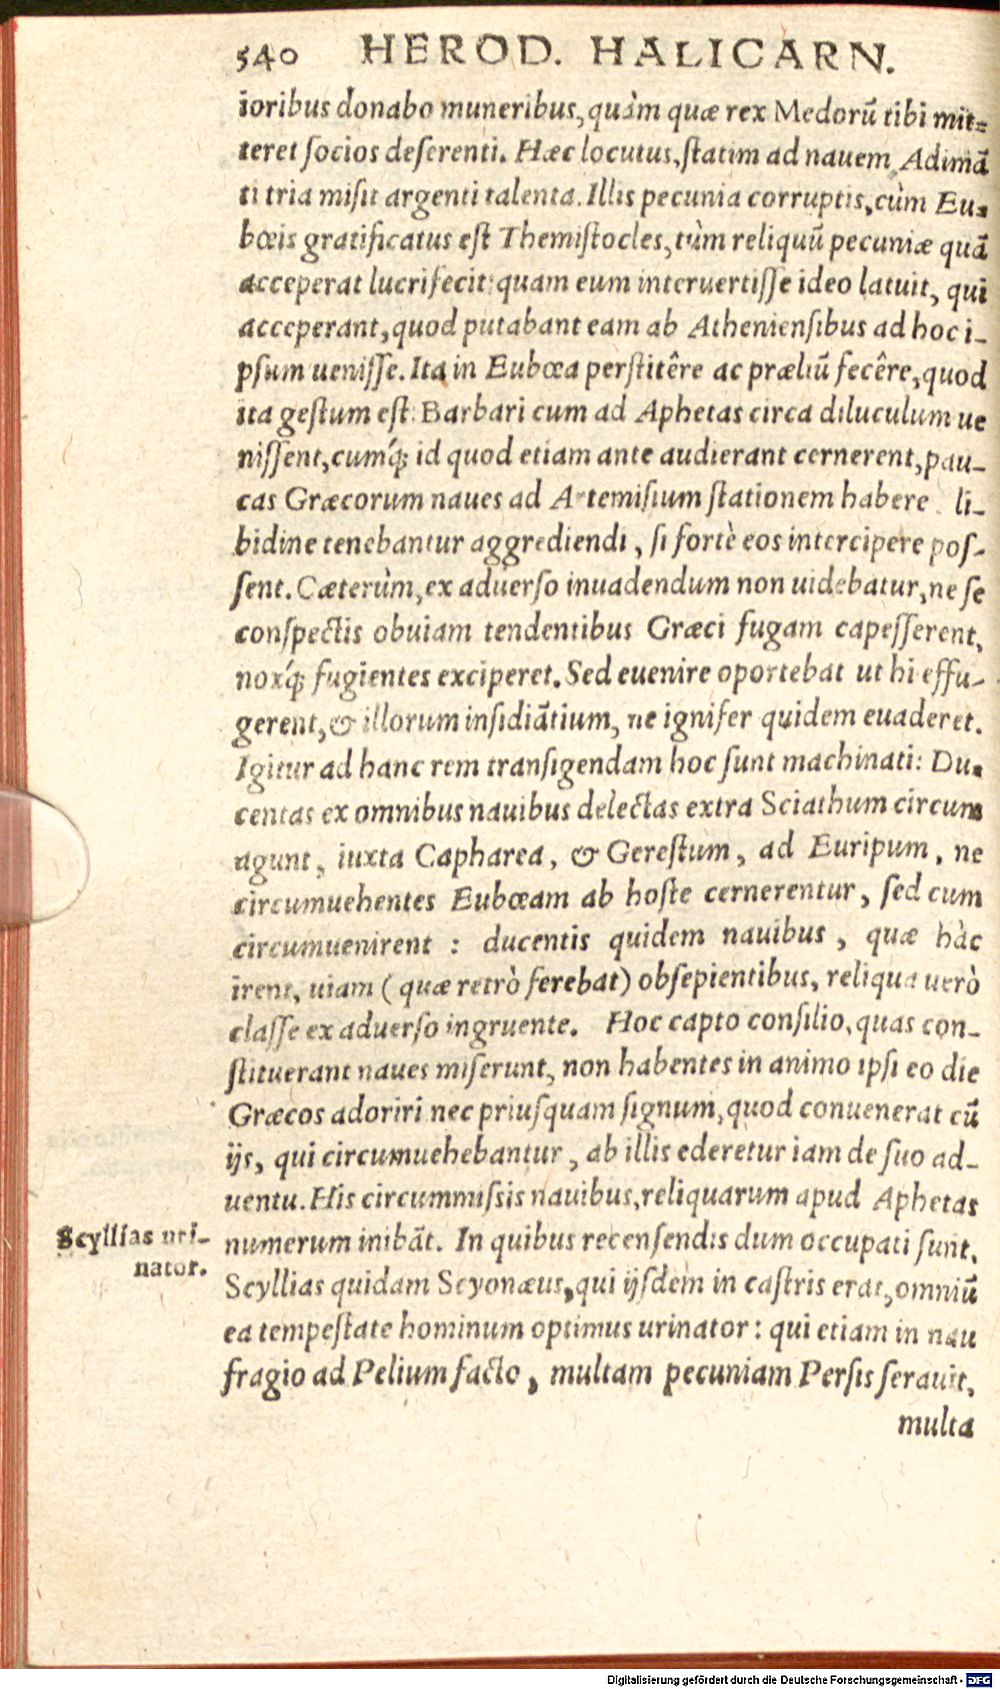 540 HEROD. HALICARN.
ioribus donabo muneribus, quàm quæ rex Medorũ tibi mit=
teret ſocios deſerenti. Hæc locutus, ſtatim ad nauem Adimã
ti tria miſit argenti talenta. Illis pecunia corruptis, cùm Eu=
bœis gratificatus eſt Themiſtocles, tùm reliquũ pecuniæ quã
acceperat lucrifecit: quam eum interuertiſſe ideo latuit, qui
acceperant, quod putabant eam ab Athenienſibus ad hoc i-
pſum ueniſſe. Ita in Eubœa perſtitêre ac præliũ fecêre, quod
ita geſtum eſt. Barbari cum ad Aphetas circa diluculum ue
niſſent, cumq́; id quod etiam ante audierant cernerent, pau-
cas Græcorum naues ad Artemiſium ſtationem habere, li-
bidine tenebantur aggrediendi, ſi fortè eos intercipere poſ-
ſent. Cæterùm, ex aduerſo inuadendum non uidebatur, ne ſe
conſpectis obuiam tendentibus Græci fugam capeſſerent,
noxq́; fugientes exciperet. Sed euenire oportebat ut hi effu-
gerent, & illorum inſidiãtium, ne ignifer quidem euaderet.
Igitur ad hanc rem tranſigendam hoc ſunt machinati: Du=
centas ex omnibus nauibus delectas extra Sciathum circum
agunt, iuxta Capharea, & Gereſtum, ad Euripum, ne
circumuehentes Eubœam ab hoſte cernerentur, ſed cum
circumuenirent : ducentis quidem nauibus, quæ hàc
irent, uiam (quæ retrò ferebat) obſepientibus, reliqua uerò
claſſe ex aduerſo ingruente. Hoc capto conſilio, quas con-
ſtituerant naues miſerunt, non habentes in animo ipſi eo die
Græcos adoriri nec priuſquam ſignum, quod conuenerat cũ
ijs, qui circumuehebantur, ab illis ederetur iam de ſuo ad-
uentu. His circummiſsis nauibus, reliquarum apud Aphetas
Scyllias uri-
nator.
numerum inibãt. In quibus recenſendis dum occupati ſunt,
Scyllias quidam Scyonæus, qui ijſdem in caſtris erat, omniũ
ea tempeſtate hominum optimus urinator: qui etiam in nau
fragio ad Pelium facto, multam pecuniam Perſis ſerauit,
multa
Digitalisierung gefördert durch die Deutsche Forschungsgemeinschaft - DFG